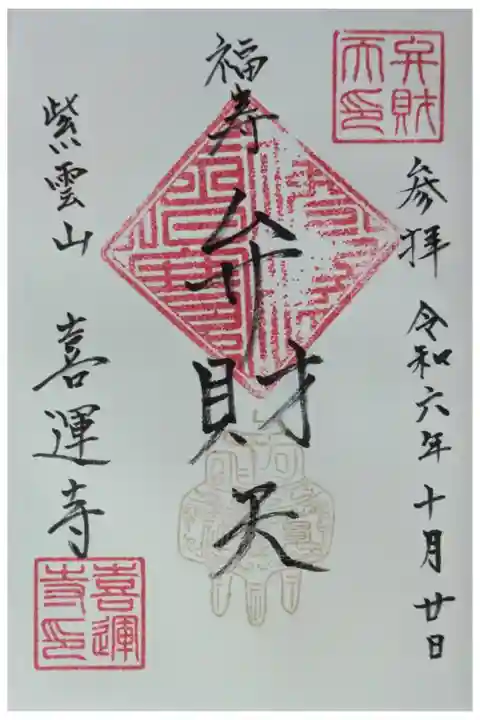 参拝 令和六年十月廿日
弁財
天印
福寿
弁財天
紫雲山 喜運寺
喜運
寺印